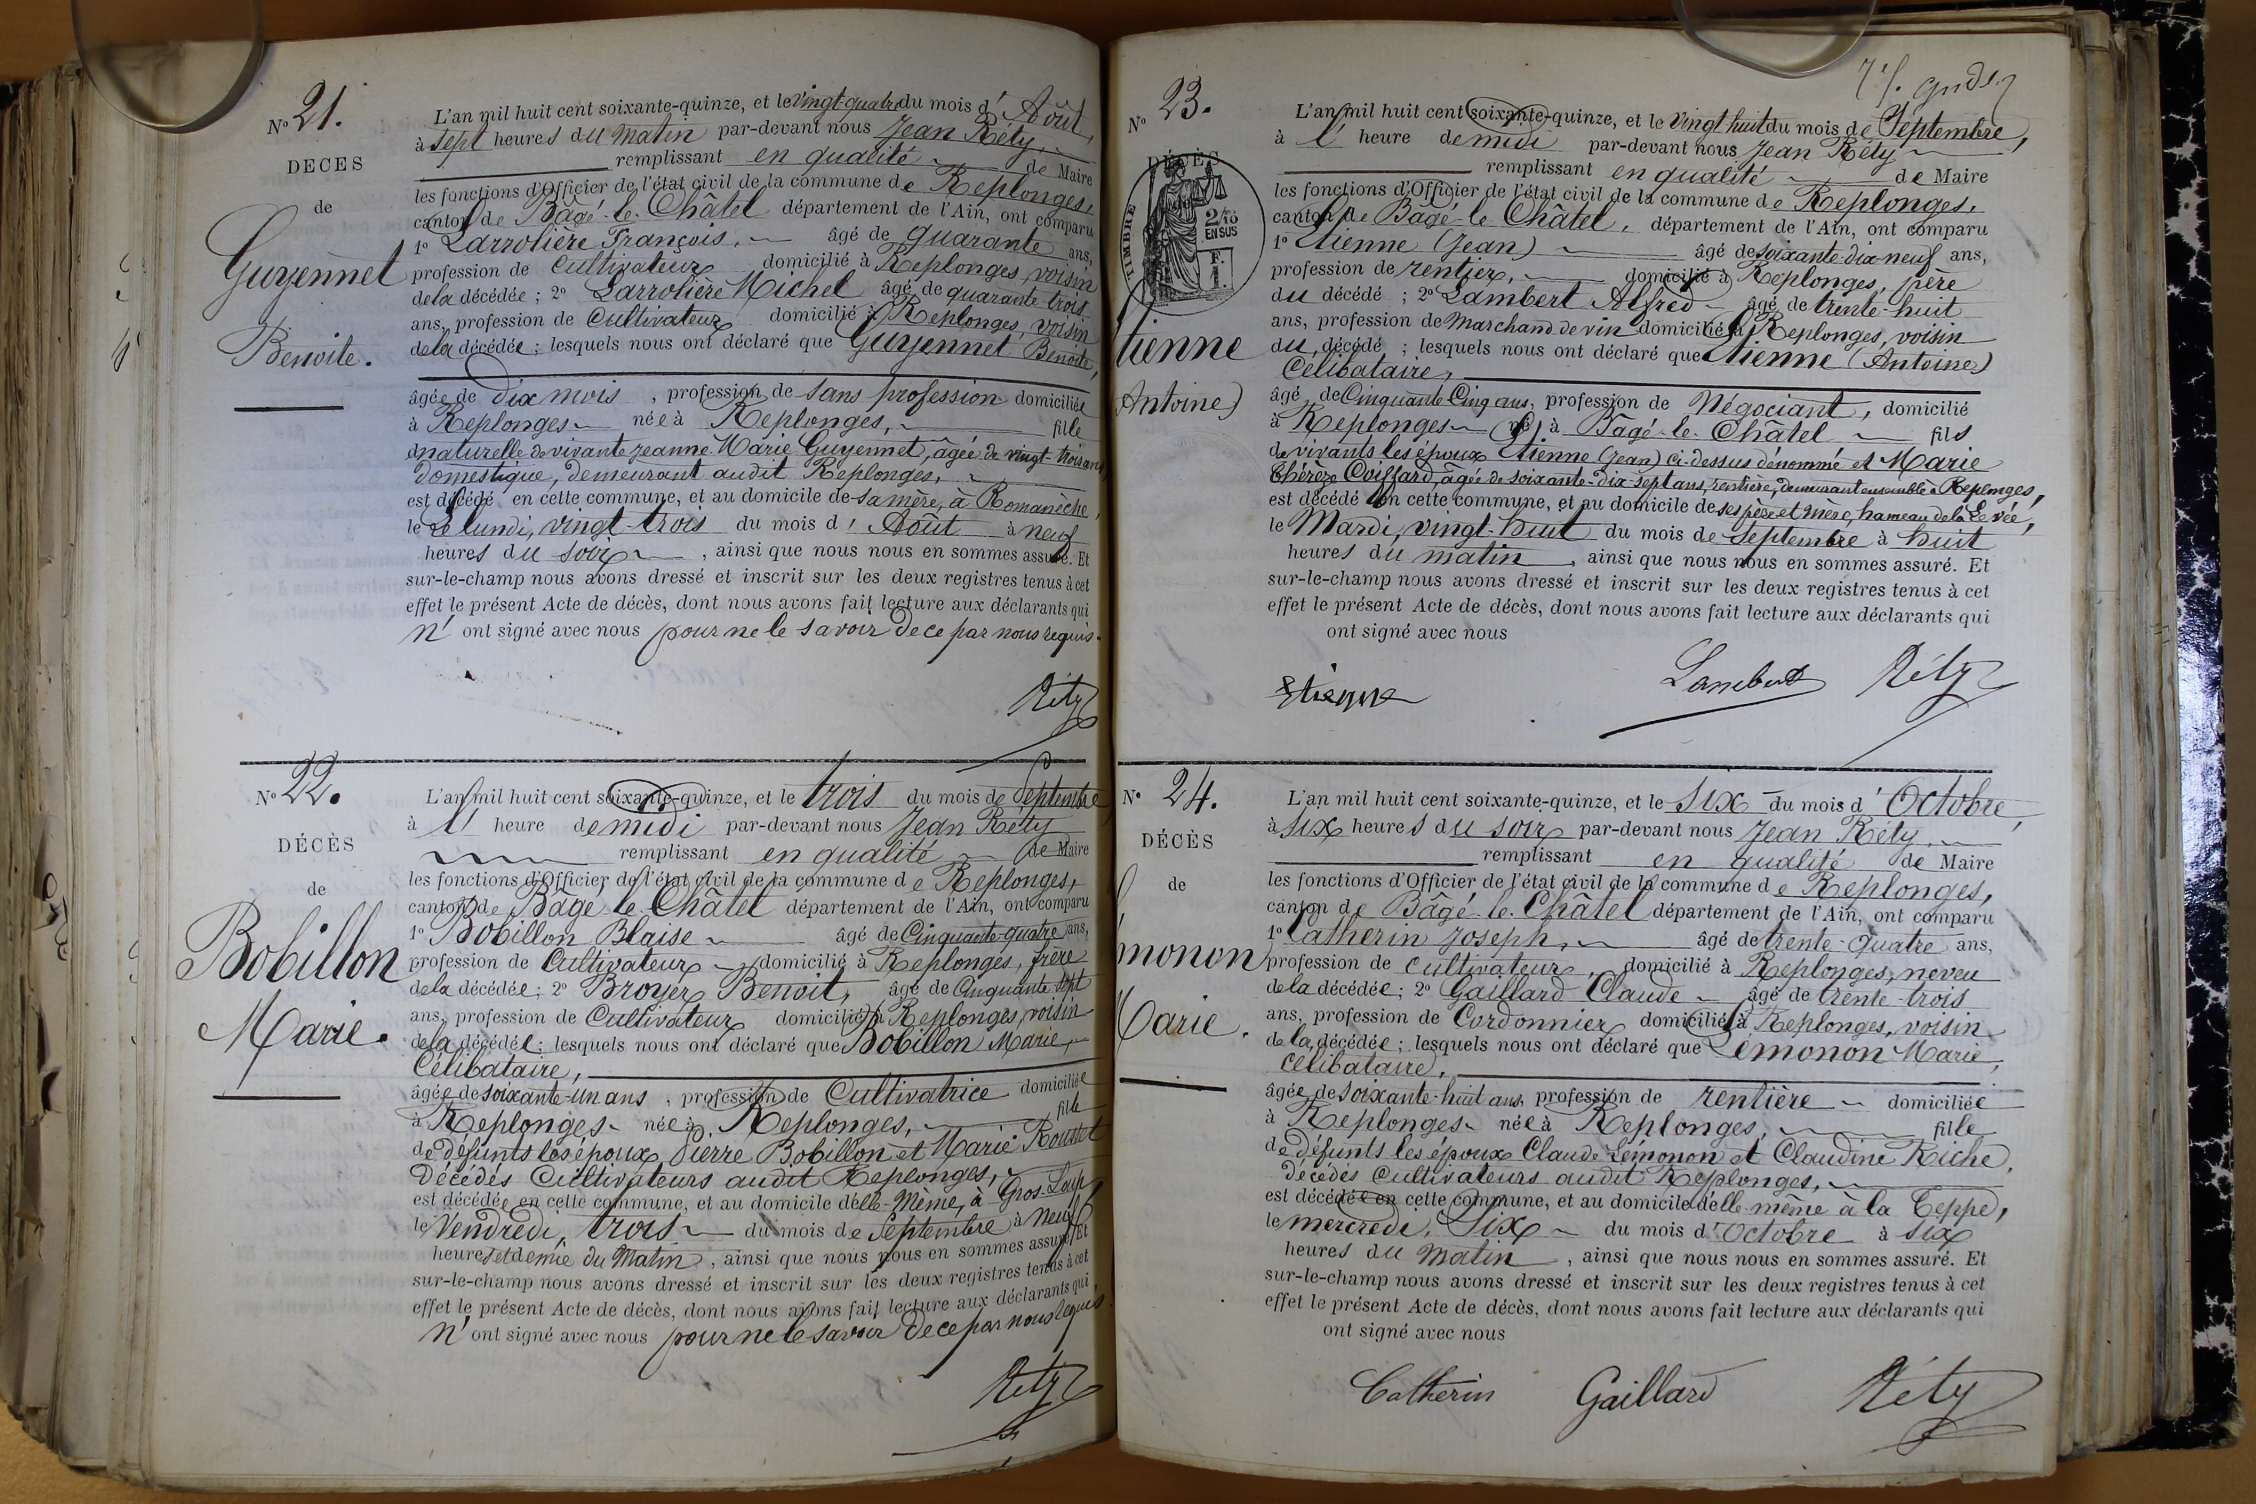 N° 21.
DECES
de
Guyennet
Benoite.
L'an mil huit cent soixante-quinze, et le vingt-quatre du mois d'Août,
à sept heures du matin par-devant nous Jean Réty
remplissant en qualité de Maire
les fonctions d'Officier de l'état civil de la commune de Replonges,
canton de Bâgé-le-Châtel département de l'Ain, ont comparu
1° Larrolière François, âgé de quarante ans,
profession de Cultivateur domicilié à Replonges, voisin
de la décédée ; 2° Larrolière Michel âgé de quarante-trois
ans, profession de Cultivateur domicilié à Replonges, voisin
de la décédée ; lesquels nous ont déclaré que Guyennet Benoite,
âgée de dix mois , profession de sans profession domiciliée
à Replonges née à Replonges, fille
naturelle de vivante Jeanne Marie Guyennet, âgée de vingt-trois ans,
domestique, demeurant audit Replonges,
est décédé en cette commune, et au domicile de sa mère, à Romanèche,
le Lundi, vingt-trois du mois d'Août à neuf
heures du soir , ainsi que nous nous en sommes assuré. Et
sur-le-champ nous avons dressé et inscrit sur les deux registres tenus à cet
effet le présent Acte de décès, dont nous avons fait lecture aux déclarants qui
n'ont signé avec nous pour ne le savoir de ce par nous requis.
Réty
N° 22.
DÉCÈS
de
Bobillon
Marie.
L'an mil huit cent soixante-quinze, et le trois du mois de Septembre,
à l'heure de midi par-devant nous Jean Réty
remplissant en qualité de Maire
les fonctions d'Officier de l'état civil de la commune de Replonges,
canton de Bâgé-le-Châtel département de l'Ain, ont comparu
1° Bobillon Blaise âgé de Cinquante-quatre ans,
profession de Cultivateur domicilié à Replonges, frère
de la décédée ; 2° Broyer Benoit, âgé de Cinquante-sept
ans, profession de Cultivateur domicilié à Replonges, voisin
de la décédée ; lesquels nous ont déclaré que Bobillon Marie,
Célibataire,
âgée de soixante-un ans , profession de Cultivatrice domiciliée
à Replonges née à Replonges, fille
de défunts les époux Pierre Bobillon et Marie Rousset
décédés Cultivateurs audit Replonges,
est décédée en cette commune, et au domicile d'elle-Même, à Gros-Loup,
le Vendredi, trois du mois de Septembre à neuf
heures et demie du Matin , ainsi que nous nous en sommes assuré. Et
sur-le-champ nous avons dressé et inscrit sur les deux registres tenus à cet
effet le présent Acte de décès, dont nous avons fait lecture aux déclarants qui
n'ont signé avec nous pour ne le savoir de ce par nous requis.
Réty
N° 23.
DÉCÈS
TIMBRE
2/10
EN SUS
F.
1.
Etienne
Antoine)
L'an mil huit cent soixante-quinze, et le vingt huit du mois de Septembre,
à l'heure de midi par-devant nous Jean Réty
remplissant en qualité de Maire
les fonctions d'Officier de l'état civil de la commune de Replonges,
canton de Bâgé-le-Châtel, département de l'Ain, ont comparu
1° Etienne (Jean) âgé de soixante-dix-neuf ans,
profession de rentier, domicilié à Replonges, père
du décédé ; 2° Lambert Alfred âgé de trente-huit
ans, profession de Marchand de vin domicilié à Replonges, voisin
du décédé ; lesquels nous ont déclaré que Etienne (Antoine)
Célibataire,
âgé de Cinquante Cinq ans, profession de Négociant, domicilié
à Replonges né à Bâgé-le-Châtel fils
de vivants les époux Etienne (Jean) ci-dessus dénommé et Marie
Thérèze Coiffard, âgée de soixante-dix-sept ans, rentière, demeurant ensemble à Replonges,
est décédé en cette commune, et au domicile de ses père et mère, hameau de la Levée,
le Mardi, vingt-huit du mois de Septembre à huit
heures du matin , ainsi que nous nous en sommes assuré. Et
sur-le-champ nous avons dressé et inscrit sur les deux registres tenus à cet
effet le présent Acte de décès, dont nous avons fait lecture aux déclarants qui
ont signé avec nous
Etienne Lambert Réty
N° 24.
DÉCÈS
de
émonon
Marie.
L'an mil huit cent soixante-quinze, et le six du mois d'Octobre,
à six heures du soir par-devant nous Jean Réty
remplissant en qualité de Maire
les fonctions d'Officier de l'état civil de la commune de Replonges,
canton de Bâgé-le-Châtel département de l'Ain, ont comparu
1° Catherin Joseph, âgé de trente-quatre ans,
profession de cultivateur, domicilié à Replonges, neveu
de la décédée ; 2° Gaillard Claude âgé de trente-trois
ans, profession de Cordonnier domicilié à Replonges, voisin
de la décédée ; lesquels nous ont déclaré que Lémonon Marie,
célibataire,
âgée de soixante-huit ans, profession de rentière domiciliée
à Replonges née à Replonges, fille
de défunts les époux Claude Lémonon et Claudine Riche,
décédés Cultivateurs audit Replonges,
est décédée en cette commune, et au domicile d'elle-même à la Teppe,
le mercredi, Six du mois d'Octobre à six
heures du Matin , ainsi que nous nous en sommes assuré. Et
sur-le-champ nous avons dressé et inscrit sur les deux registres tenus à cet
effet le présent Acte de décès, dont nous avons fait lecture aux déclarants qui
ont signé avec nous
Catherin Gaillard Réty